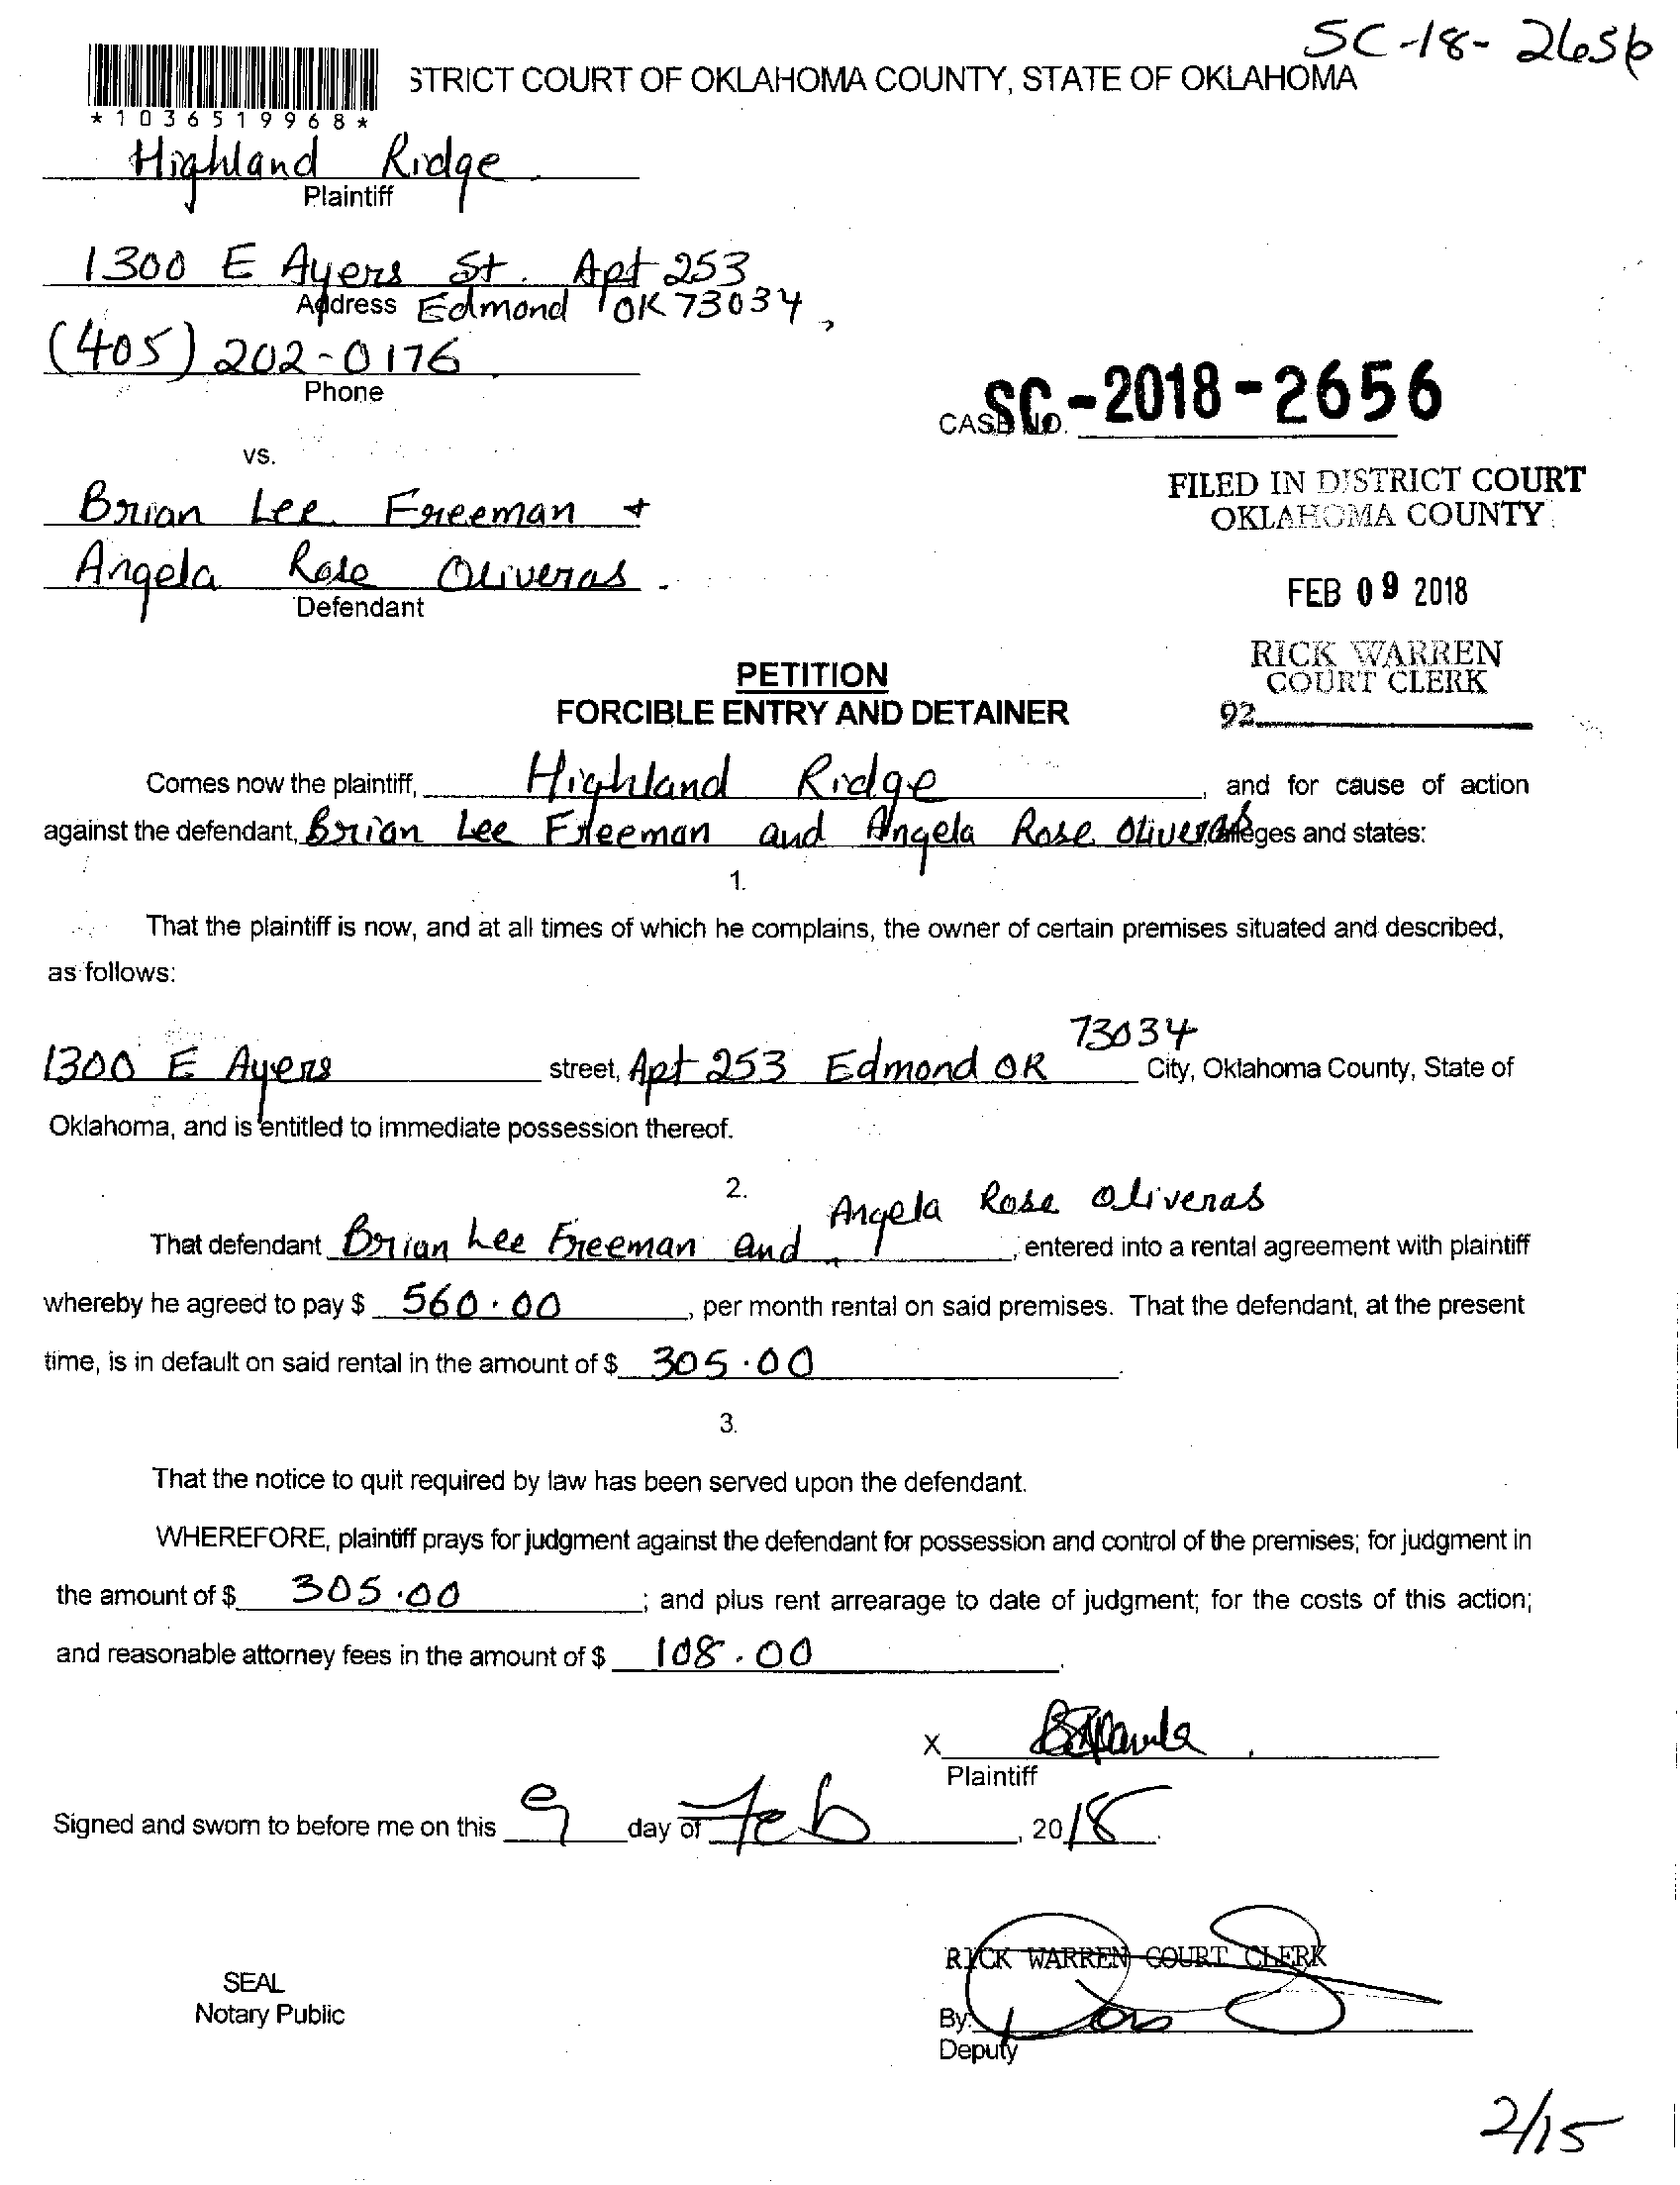 SC-18-2656
STRICT COURT OF OKLAHOMA COUNTY, STATE OF OKLAHOMA
*1036519968*
Highland Ridge
Plaintiff
1300 E Ayers St. Apt 253
Address Edmond OK 73034
(405) 202-0176
Phone
CASE NO. SC-2018-2656
vs.
FILED IN DISTRICT COURT
OKLAHOMA COUNTY
Brian Lee Freeman +
Angela Rose Oliveras
Defendant
FEB 09 2018
RICK WARREN
COURT CLERK
92
PETITION
FORCIBLE ENTRY AND DETAINER
Comes now the plaintiff, Highland Ridge, and for cause of action
against the defendant, Brian Lee Freeman and Angela Rose Oliveras alleges and states:
1.
That the plaintiff is now, and at all times of which he complains, the owner of certain premises situated and described,
as follows:
73034
1300 E Ayers street, Apt 253 Edmond OK City, Oklahoma County, State of
Oklahoma, and is entitled to immediate possession thereof.
2.
Angela Rose Oliveras
That defendant Brian Lee Freeman and, entered into a rental agreement with plaintiff
whereby he agreed to pay $ 560.00, per month rental on said premises. That the defendant, at the present
time, is in default on said rental in the amount of $ 305.00.
3.
That the notice to quit required by law has been served upon the defendant.
WHEREFORE, plaintiff prays for judgment against the defendant for possession and control of the premises; for judgment in
the amount of $ 305.00; and plus rent arrearage to date of judgment; for the costs of this action;
and reasonable attorney fees in the amount of $ 108.00.
X
Plaintiff
Signed and sworn to before me on this 9 day of Feb, 2018.
RICK WARREN COURT CLERK
SEAL
Notary Public
By:
Deputy
2/15